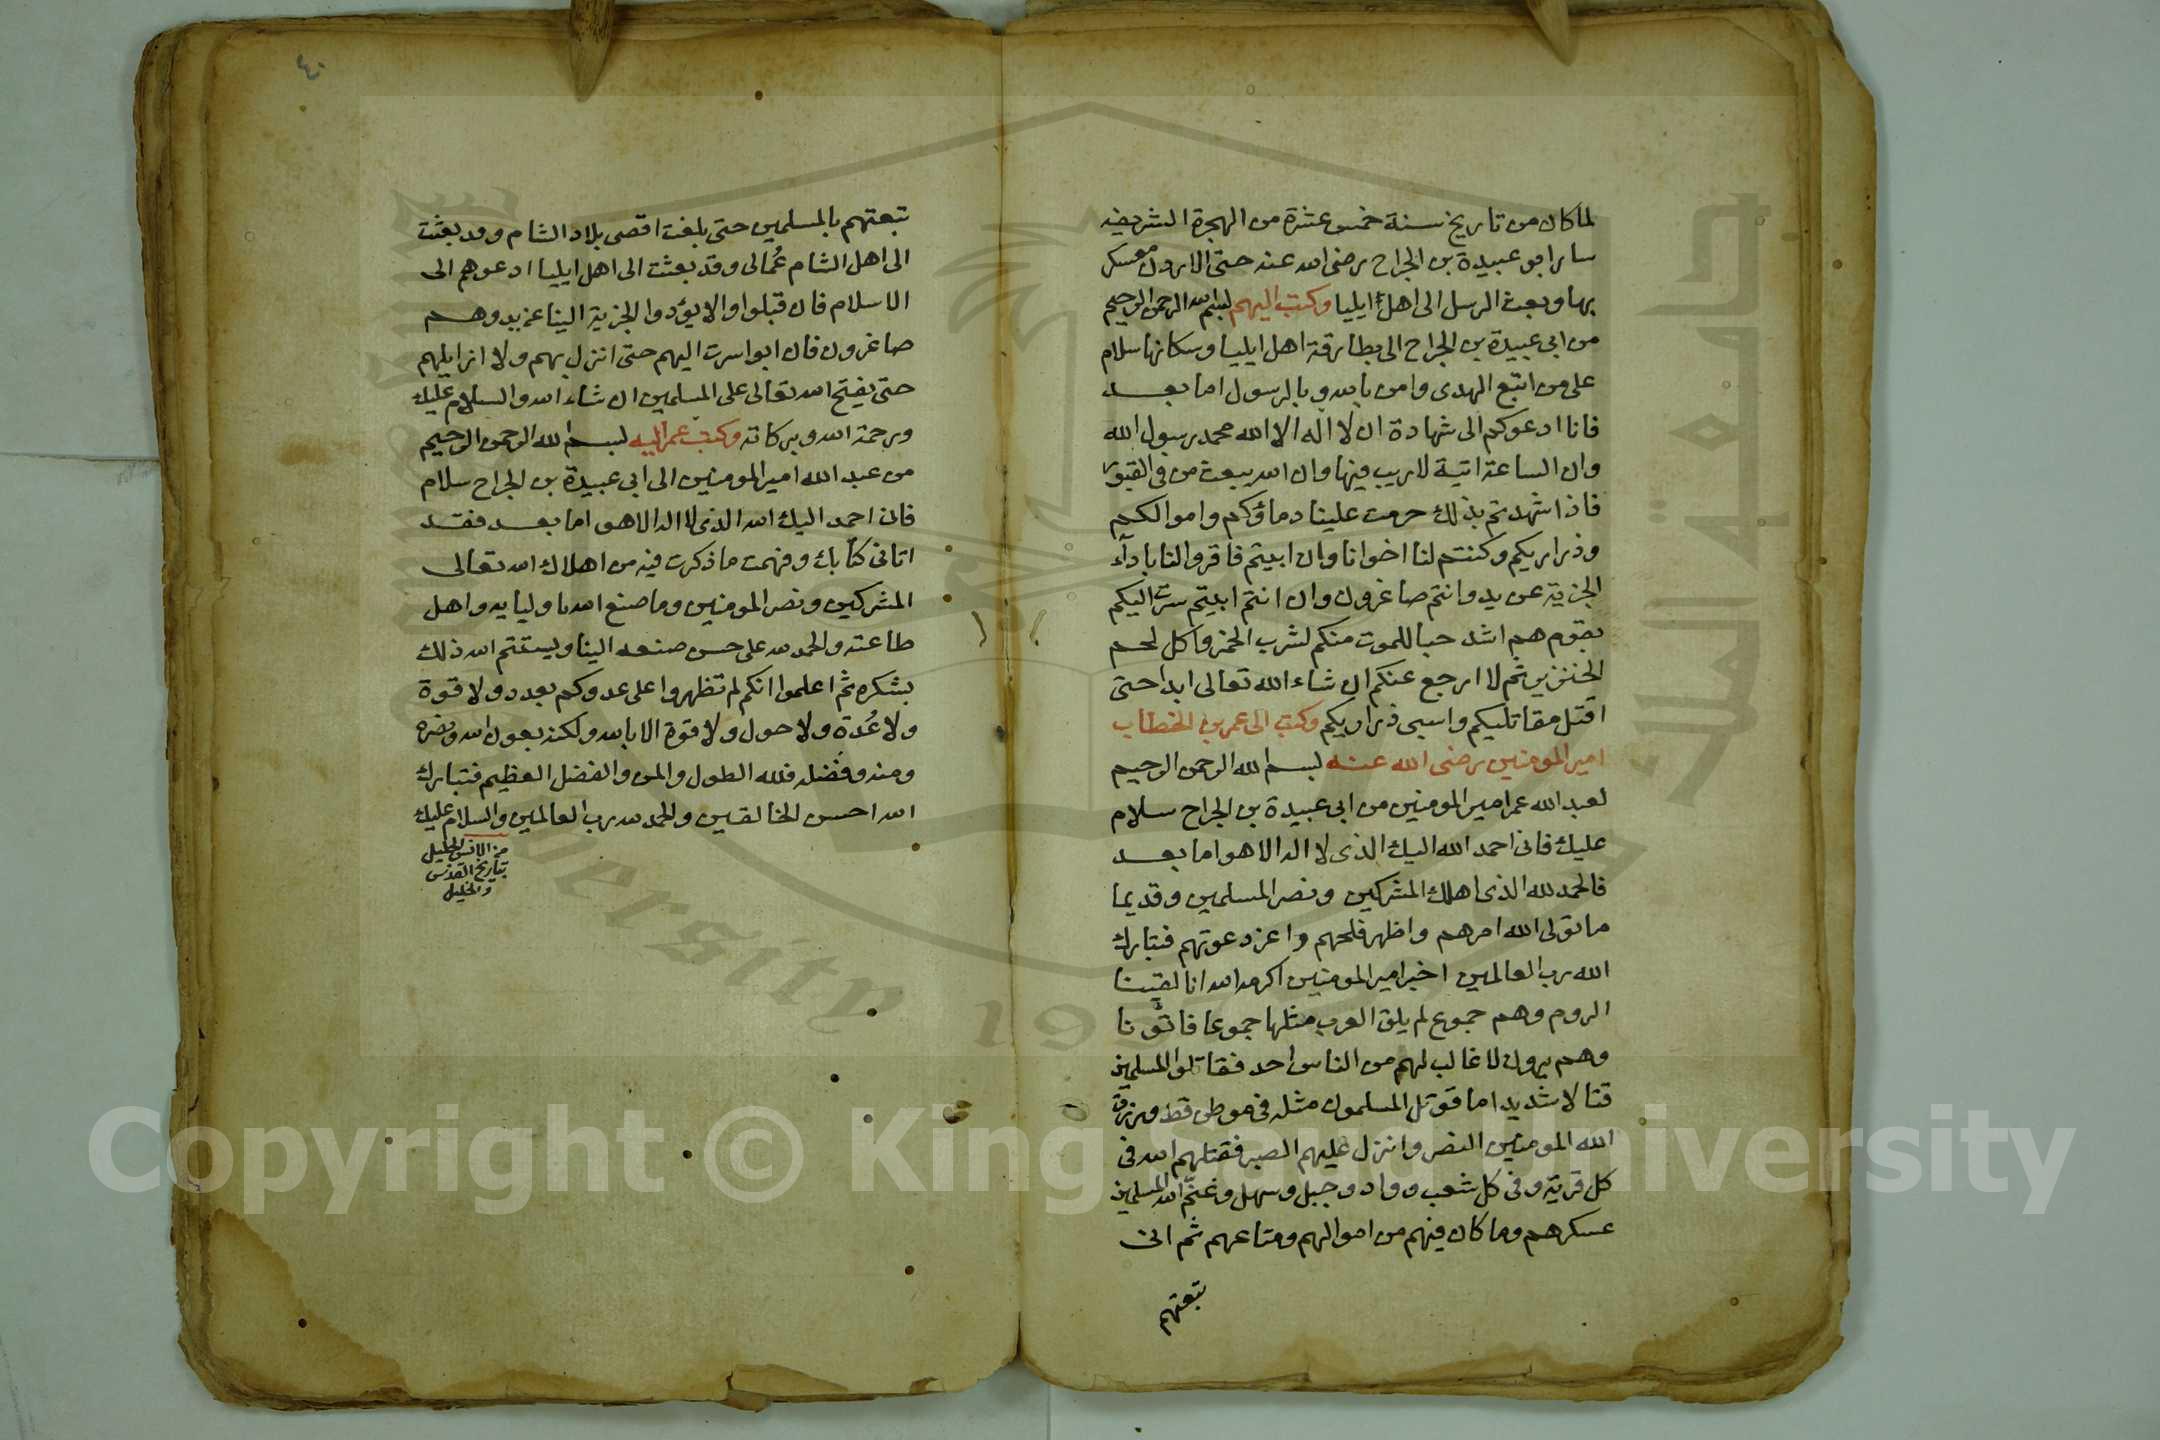 لما كان من تاريخ سنة خمس عشرة من الهجرة الشريفه
سار ابو عبيدة بن الجراح رضى الله عنه حتى الاردن معسكر
بها وبعث الرسل الى اهل ايليا وكتب اليهم بسم الله الرحمن الرحيم
من ابى عبيدة بن الجراح الى بطارقة اهل ايليا وسكانها سلام
على من اتبع الهدى وامن بالله وبالرسول اما بعد
فانا ادعوكم الى شهادة ان لا اله الا الله محمد رسول الله
وان الساعة اتية لا ريب فيها وان الله يبعث من فى القبور
فاذا شهدتم بذلك حرمت علينا دماؤكم واموالكم
وذراريكم وكنتم لنا اخوانا وان ابيتم فاقروا لنا باداء
الجزية عن يد وانتم صاغرون وان انتم ابيتم سرت اليكم
بقوم هم اشد حبا للموت منكم لشرب الخمر واكل لحم
الخنزير ثم لا ارجع عنكم ان شاء الله تعالى ابدا حتى
اقتل مقاتليكم واسبى ذراريكم وكتب الى عمر بن الخطاب
امير المومنين رضى الله عنه بسم الله الرحمن الرحيم
لعبد الله عمر امير المومنين من ابى عبيدة بن الجراح سلام
عليك فانى احمد الله اليك الذى لا اله الا هو اما بعد
فالحمد لله الذى اهلك المشركين ونصر المسلمين وقديما
ما تولى الله امرهم واظهر فلحهم واعز دعوتهم فتبارك
الله رب العالمين اخبر امير المومنين اكرمه الله انا لقينا
الروم وهم جموع لم يلق العرب مثلها جموعا فاتونا
وهم يرون لا غالب لهم من الناس احد فقاتلوا المسلمين
قتالا شديدا ما قوتل المسلمون مثله فى موطن قط ورزق
الله المومنين النصر وانزل عليهم الصبر فقتلهم الله فى
كل قرية وفى كل شعب وواد وجبل وسهل وغنم الله المسلمين
عسكرهم وما كان فيهم من اموالهم ومتاعهم ثم انى
تبعتهم
٤٠
تبعتهم بالمسلمين حتى بلغت اقصى بلاد الشام وقد بعثت
الى اهل الشام عُمالى وقد بعثت الى اهل ايليا ادعوهم الى
الاسلام فان قبلوا والا يؤدوا الجزية الينا عن يد وهم
صاغرون فان ابوا سرت اليهم حتى انزل بهم ولا ازايلهم
حتى يفتح الله تعالى على المسلمين ان شاء الله والسلام عليك
ورحمة الله وبركاته وكتب عمر اليه بسم الله الرحمن الرحيم
من عبد الله امير المومنين الى ابى عبيدة بن الجراح سلام
فانى احمد اليك الله الذى لا اله الا هو اما بعد فقد
اتانى كتابك وفهمت ما ذكرت فيه من اهلاك الله تعالى
المشركين ونصر المومنين وما صنع الله باوليايه واهل
طاعته والحمد لله على حسن صنعه الينا ويستتم الله ذلك
بشكره ثم اعلموا انكم لم تظهروا على عدوكم بعدد ولا قوة
ولا عُدة ولا حول ولا قوة الا بالله ولكنه بعون الله ونصره
ومنه وفضله فلله الطول والمن والفضل العظيم فتبارك
الله احسن الخالقين والحمد لله رب العالمين والسلام عليك
من الانس الجليل
بتاريخ القدس
والخليل
Copyright © King Saud University